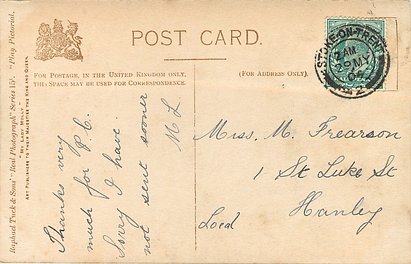 POST CARD.
FOR POSTAGE, IN THE UNITED KINGDOM ONLY,
THIS SPACE MAY BE USED FOR CORRESPONDENCE.
(FOR ADDRESS ONLY.)
STOKE-ON-TRENT
MY
Thankes very
much for P.C.
Sorry I have
not sent sooner
M L
Miss. M. Frearson
1 St Luke St
Hanley
Local
Raphael Tuck & Sons' "Real Photograph" Series "Play Pictorial."
"MY LADY MOLLY"
ART PUBLISHERS TO THEIR MAJESTIES THE KING AND QUEEN.